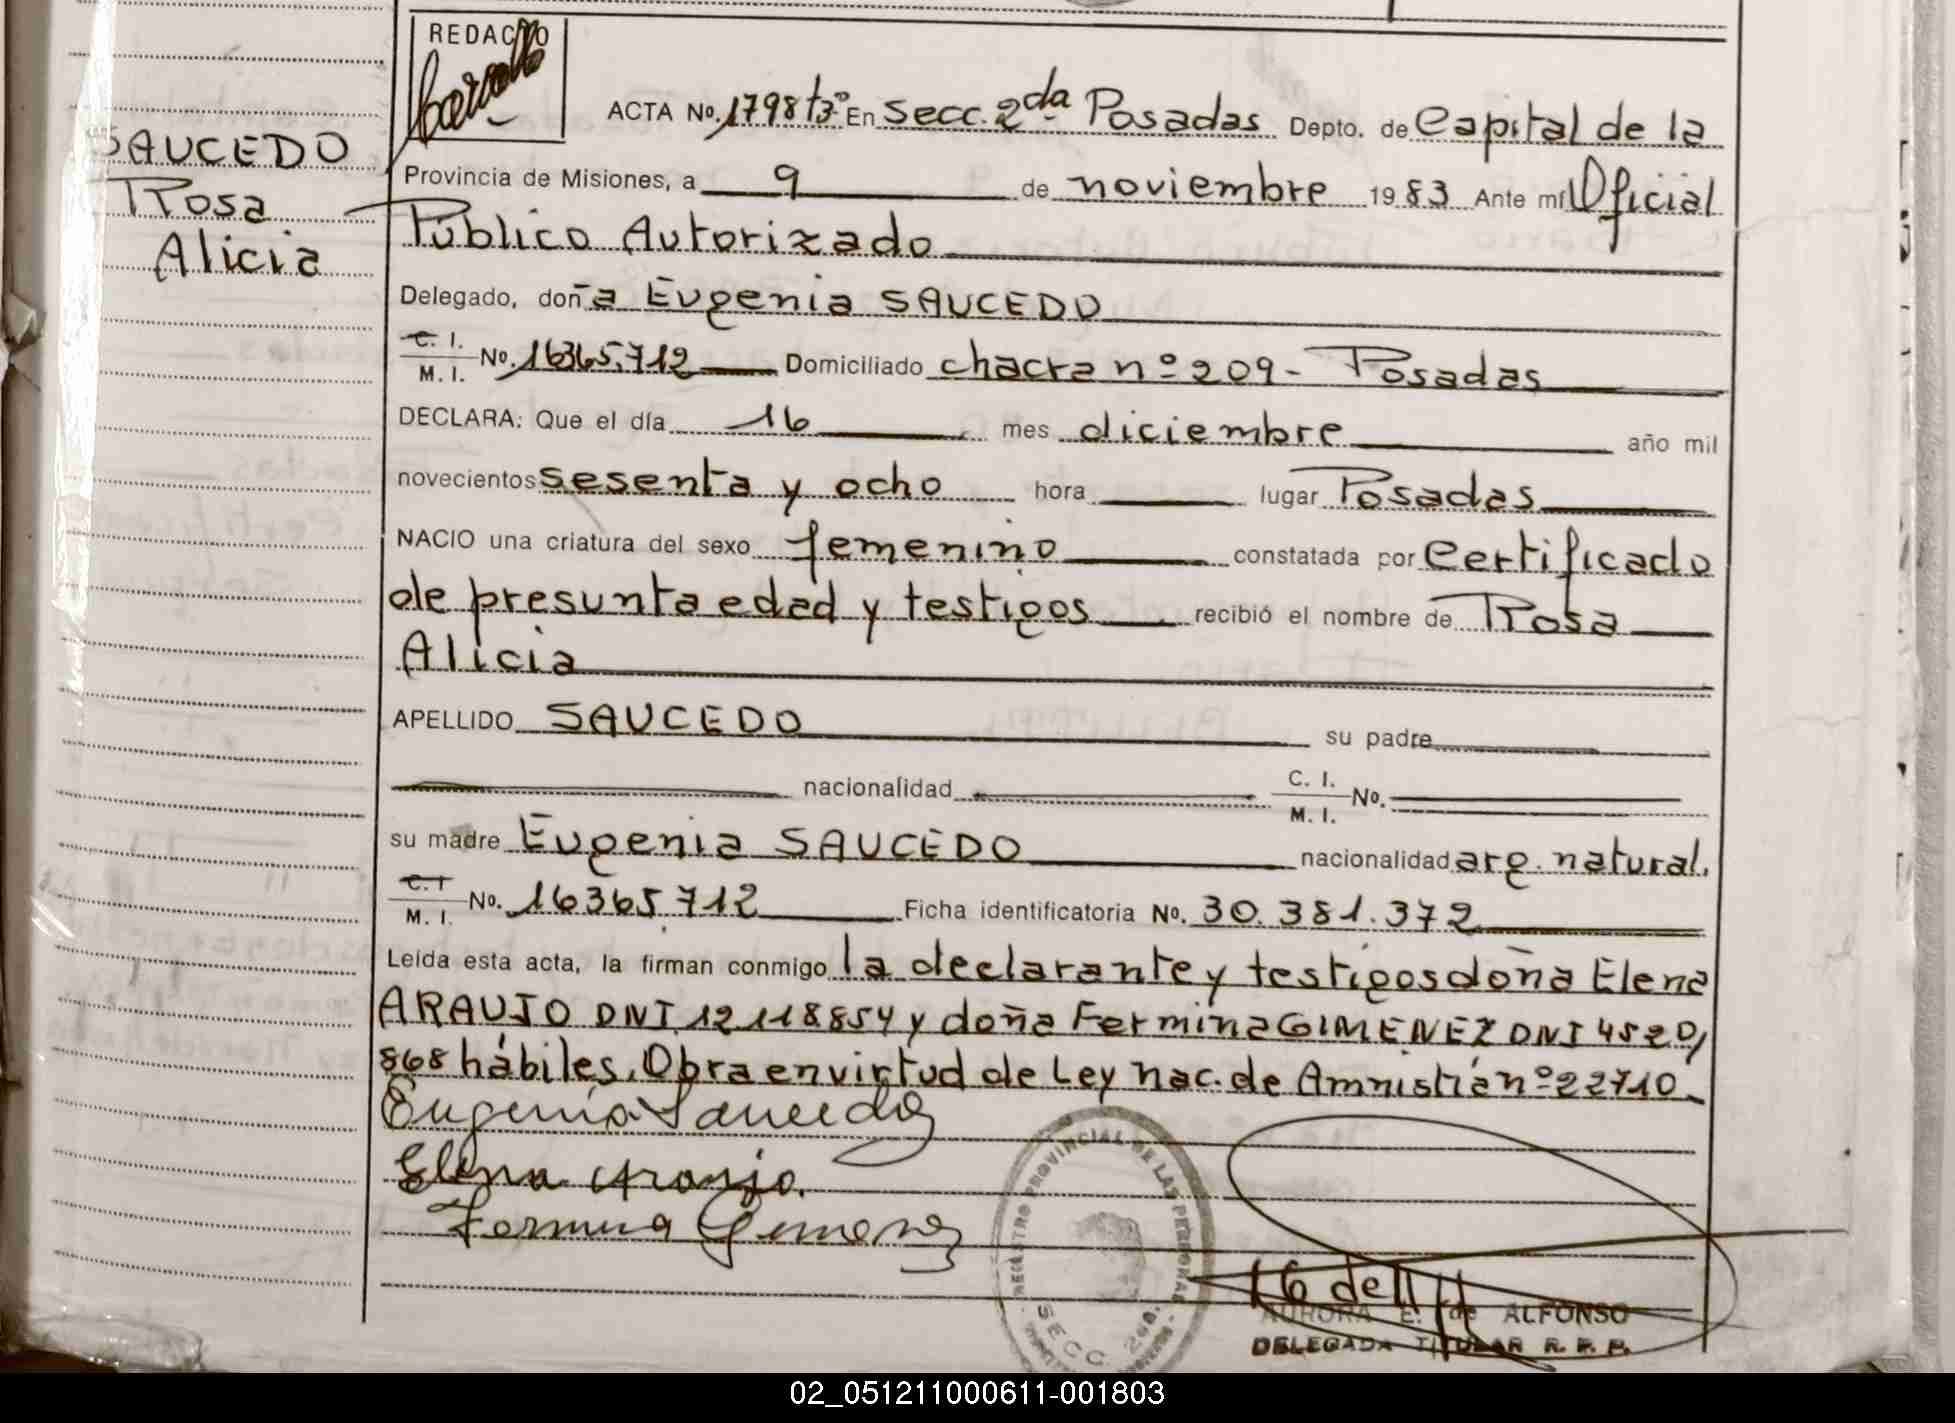 REDACTO
SAUCEDO
Rosa
Alicia
ACTA No. 1798 t3º En Secc. 2da Posadas Depto. de Capital de la
Provincia de Misiones, a 9 de noviembre 1983 Ante mí Oficial
Público Autorizado
Delegado, doña Eugenia SAUCEDO
C. I. M. I. No. 16365.712 Domiciliado chacra nº 209- Posadas
DECLARA: Que el día 16 mes diciembre año mil
novecientos sesenta y ocho hora lugar Posadas
NACIO una criatura del sexo femenino constatada por Certificado
de presunta edad y testigos recibió el nombre de Rosa
Alicia
APELLIDO SAUCEDO su padre
nacionalidad C. I. M. I. No.
su madre Eugenia SAUCEDO nacionalidad arg. natural.
C. I M. I. No. 16365.712 Ficha identificatoria No. 30.381.372
Leída esta acta, la firman conmigo la declarante y testigos doña Elena
ARAUJO DNI 12118854 y doña Fermina GIMENEZ DNI 4520/
868 hábiles. Obra en virtud de Ley nac. de Amnistía nº 22710.
Eugenia Saucedo
Elena Araujo.
Fermina Gimenez
REGISTRO PROVINCIAL DE LAS PERSONAS
SECC. 2da.
AURORA E. de ALFONSO
DELEGADA TITULAR R. P. P.
02_051211000611-001803